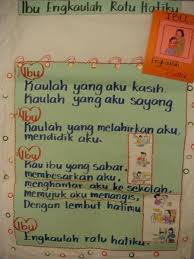 Ibu Engkaulah Ratu Hatiku
IBU
Engkaulah
Ibu
Kaulah yang aku kasih
Kaulah yang aku sayang
Ibu
Kaulah yang melahirkan aku,
mendidik aku.
Ibu
Kau ibu yang sabar,
membesarkan aku,
menghantar aku ke sekolah,
memujuk aku menangis,
Dengan lembut hatimu
Ibu
Engkaulah ratu hatiku.